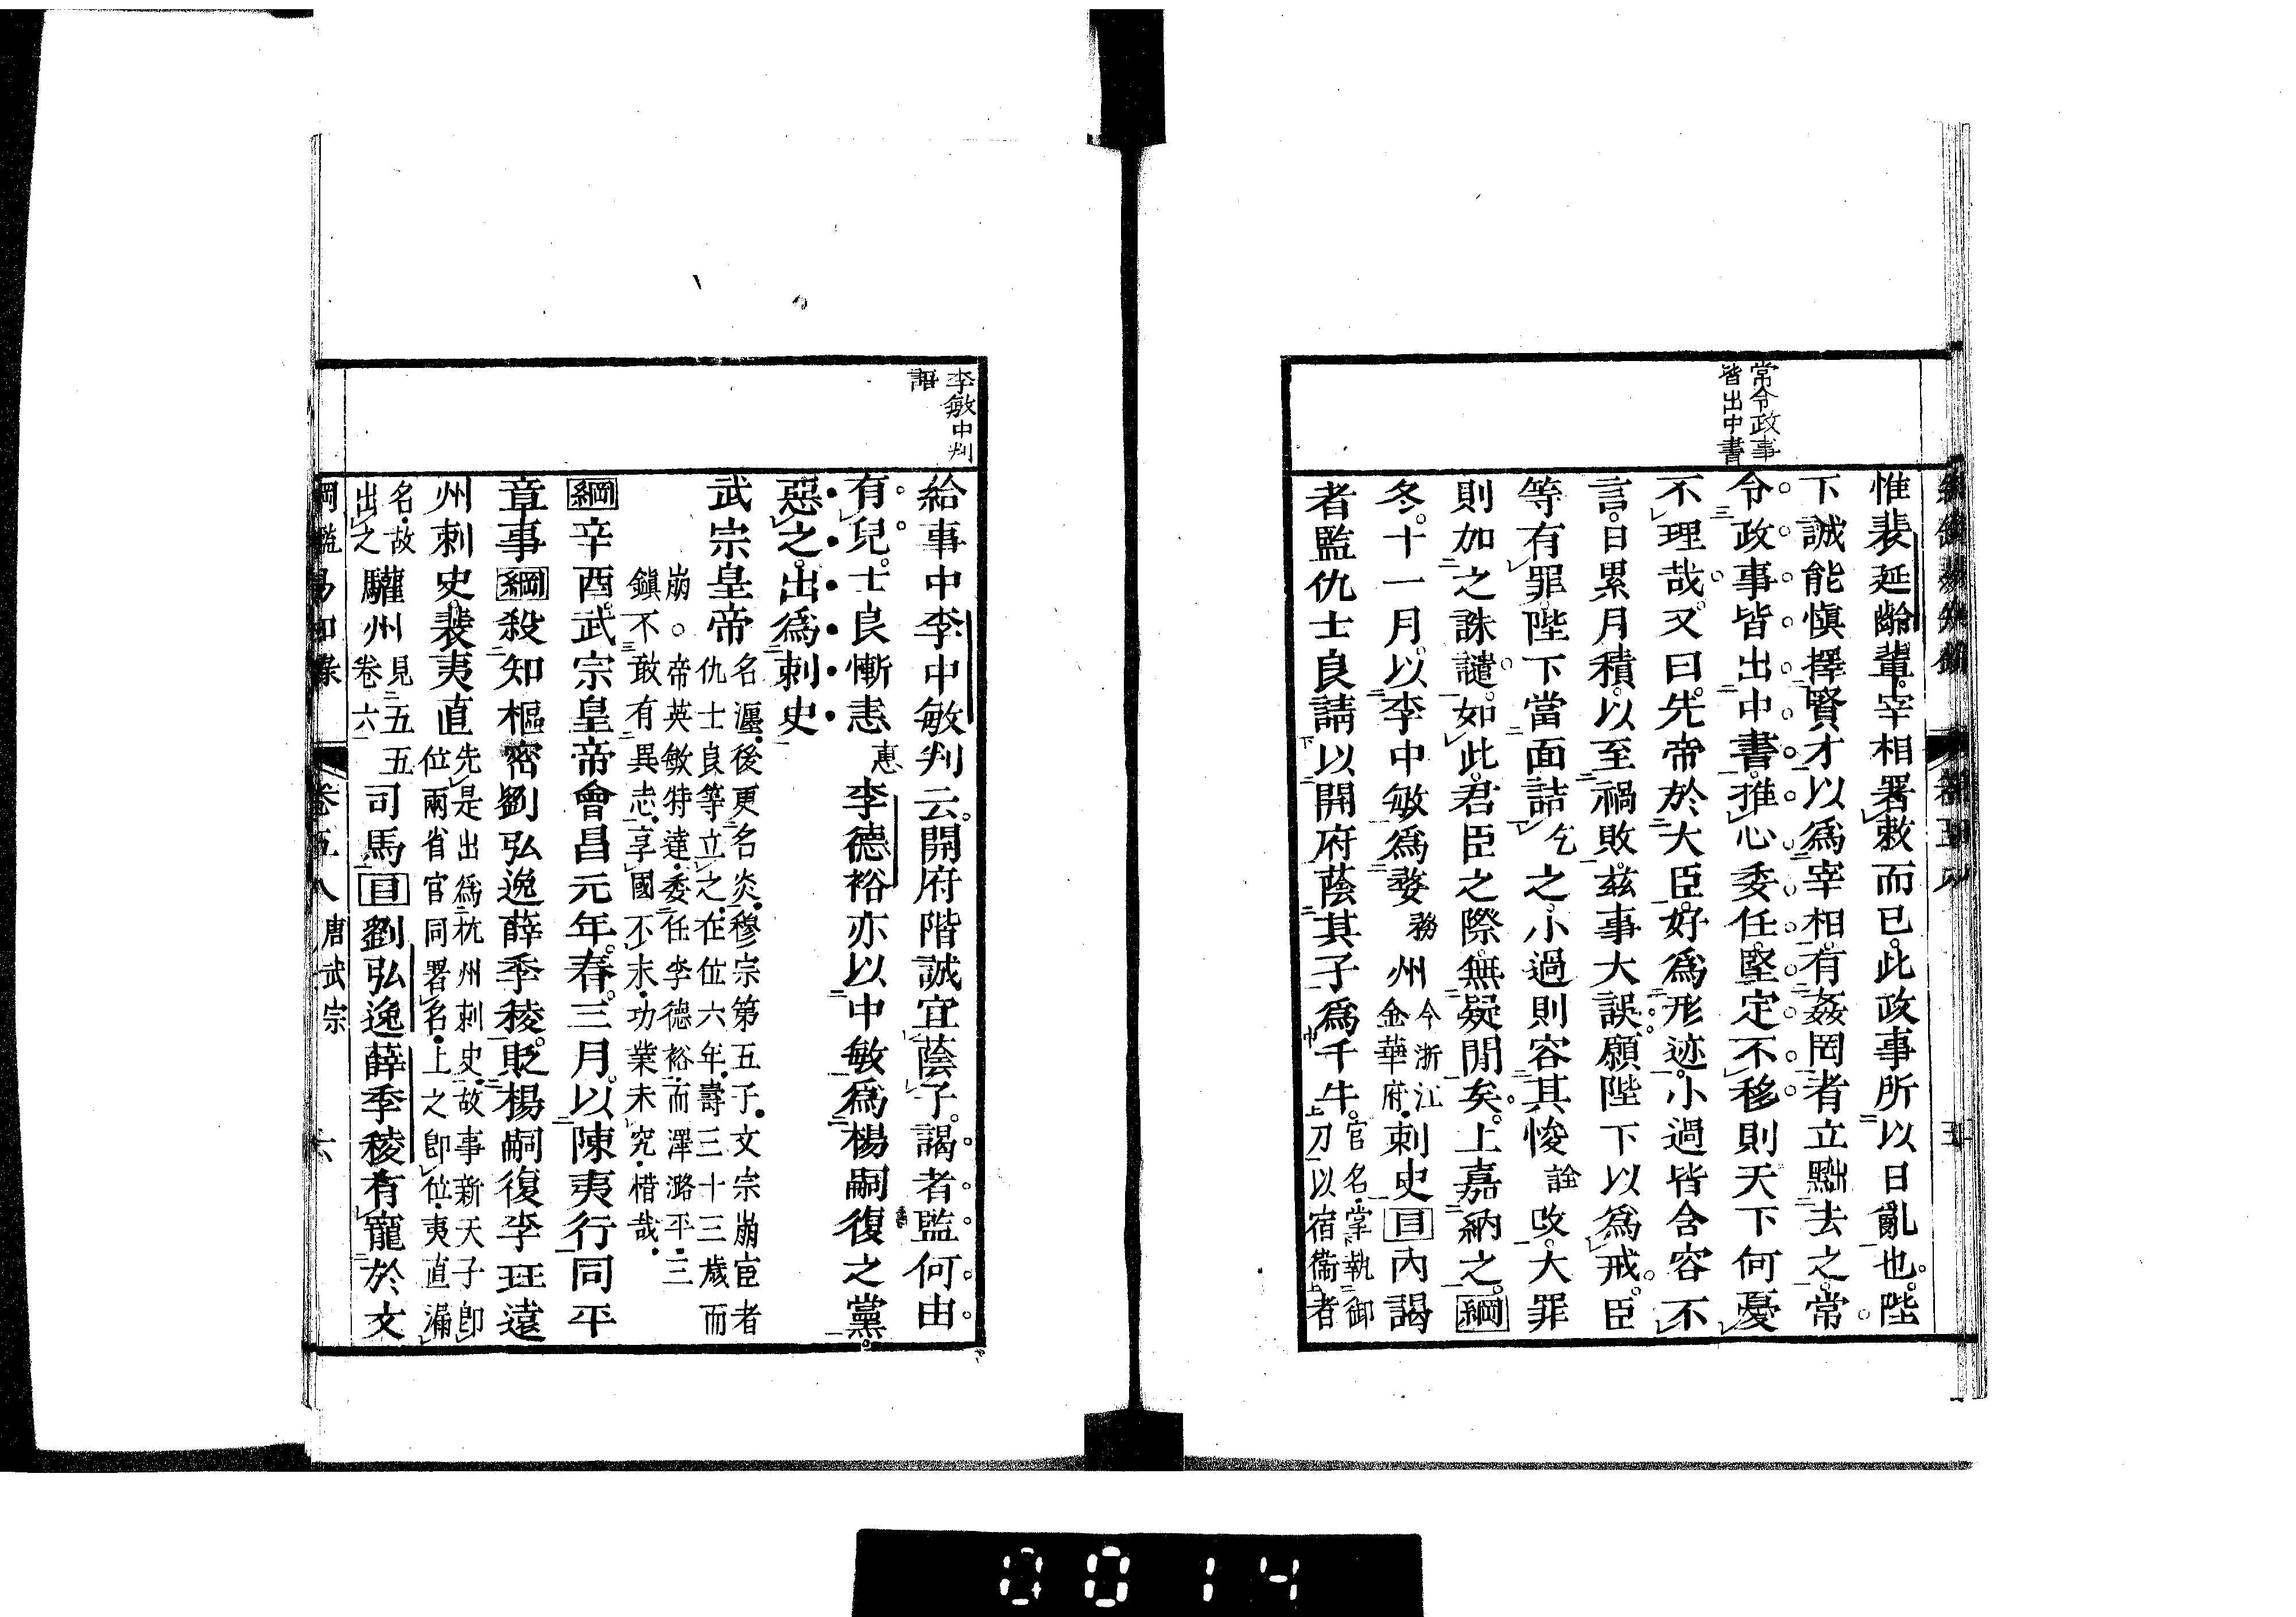 常令政事
皆出中書
惟裴延齡輩宰相署敕而已此政事所以日亂也陛
下誠能慎擇賢才以爲宰相有姦罔者立黜去之常
令政事皆出中書推心委任堅定不移則天下何憂
不理哉又曰先帝於大臣好爲形迹小過皆含容不
言日累月積以至禍敗茲事大誤願陛下以爲戒臣
等有罪陛下當面詰乞之小過則容其悛詮改大罪
則加之誅譴如此君臣之際無疑閒矣上嘉納之綱
冬十一月以李中敏爲婺務州今浙江金華府刺史目內謁
者監仇士良請以開府蔭其子爲千牛官名掌執御刀以宿衞者
李敏中判
語
給事中李中敏判云開府階誠宜蔭子謁者監何由
有兒士良慚恚恵李德裕亦以中敏爲楊嗣復之黨
惡之出爲刺史
武宗皇帝名瀍後更名炎穆宗第五子文宗崩宦者
仇士良等立之在位六年壽三十三歲而
崩○帝英敏特達委任李德裕而澤潞平三
鎮不敢有異志享國不永功業未究惜哉
綱辛酉武宗皇帝會昌元年春三月以陳夷行同平
章事綱殺知樞密劉弘逸薛季稜貶楊嗣復李珏遠
州刺史裴夷直先是出爲杭州刺史故事新天子卽位兩省官同署名上之卽位夷直漏
名故出之驩州見五五卷六五司馬目劉弘逸薛季稜有寵於文
綱鑑易知錄 卷五八 唐武宗 六
0014